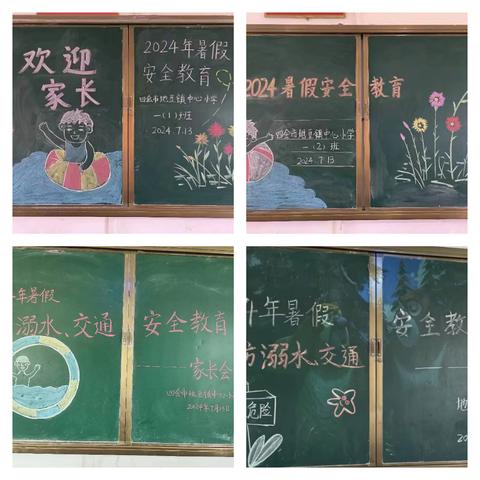 欢迎
家长
2024年暑假
安全教育
四会市地豆镇中心小学
一(1)班
2024.7.13
2024暑假安全教育
四会市地豆镇中心小学
一(2)班
2024.7.13
年暑假
溺水、交通 安全教育
家长会
四会市地豆镇中心小
2024年7月13日
年暑假
防溺水、交通 安全教
危险
地
20